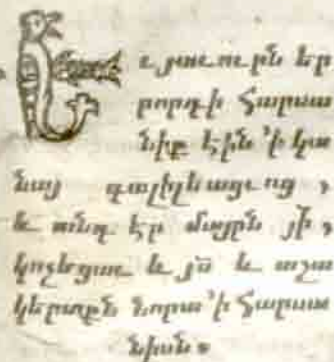 Եւ յաւուրն եր
րորդի հարսա
նիք էին ՚ի կա
նայ գալիլեացւոց,
և անդ էր մայրն յի,
կոչեցաւ և յս և աշա
կերտքն նորա ՚ի հարսա
նիսն։